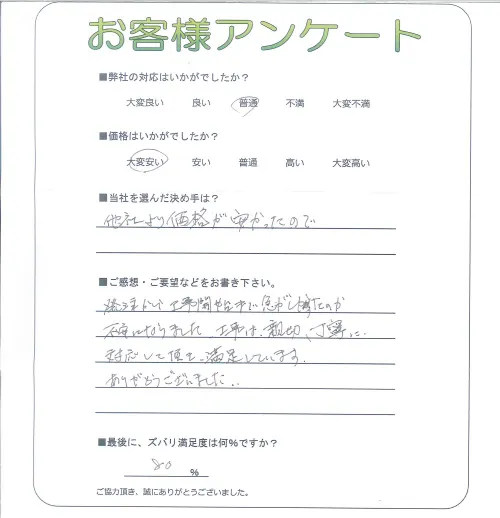 お客様アンケート
■弊社の対応はいかがでしたか?
大変良い 良い 普通 不満 大変不満
■価格はいかがでしたか?
大変安い 安い 普通 高い 大変高い
■当社を選んだ決め手は?
他社より価格が安かったので
■ご感想・ご要望などをお書き下さい。
工事
不安になりました 工事は、親切、丁寧に
対応して頂き、満足しています.
ありがとうございました..
■最後に、ズバリ満足度は何%ですか?
80 %
ご協力頂き、誠にありがとうございました。